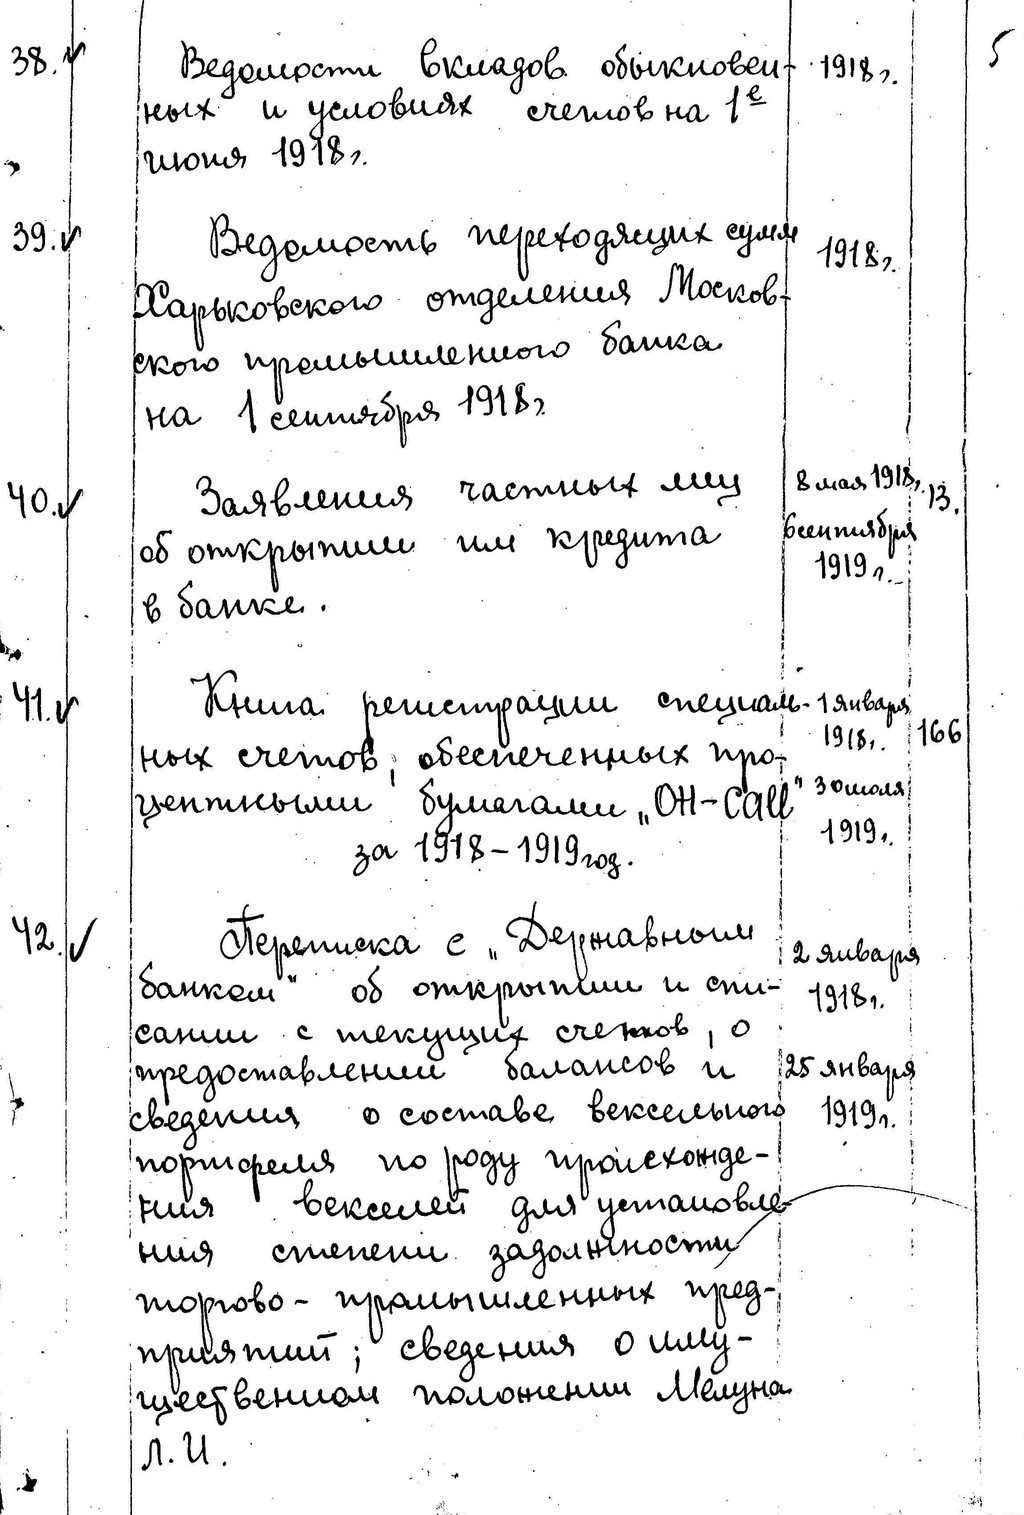 5
38. Ведомости вкладов обыкновен- 1918 г.
ных и условиях счетов на 1е
июня 1918 г.
39. Ведомость переходящих сумм 1918 г.
Харьковского отделения Москов-
ского промышленного банка
на 1 сентября 1918 г.
40. Заявления частных лиц 8 мая 1918 г. 13.
об открытии им кредита 6 сентября
в банке. 1919 г.
41. Книга регистрации специаль- 1 января
ных счетов, обеспеченных про- 1918 г. 166
центными бумагами „ОН-call" 30 июля
за 1918-1919 год. 1919 г.
42. Переписка с „Державным 2 января
банком" об открытии и спи- 1918 г.
сании с текущих счетов, о
предоставлении балансов и 25 января
сведения о составе вексельного 1919 г.
портфеля по роду происхожде-
ния векселей для установле-
ния степени задолжности
торгово-промышленных пред-
приятий; сведения о иму-
щественном положении Мелуна
Л.И.